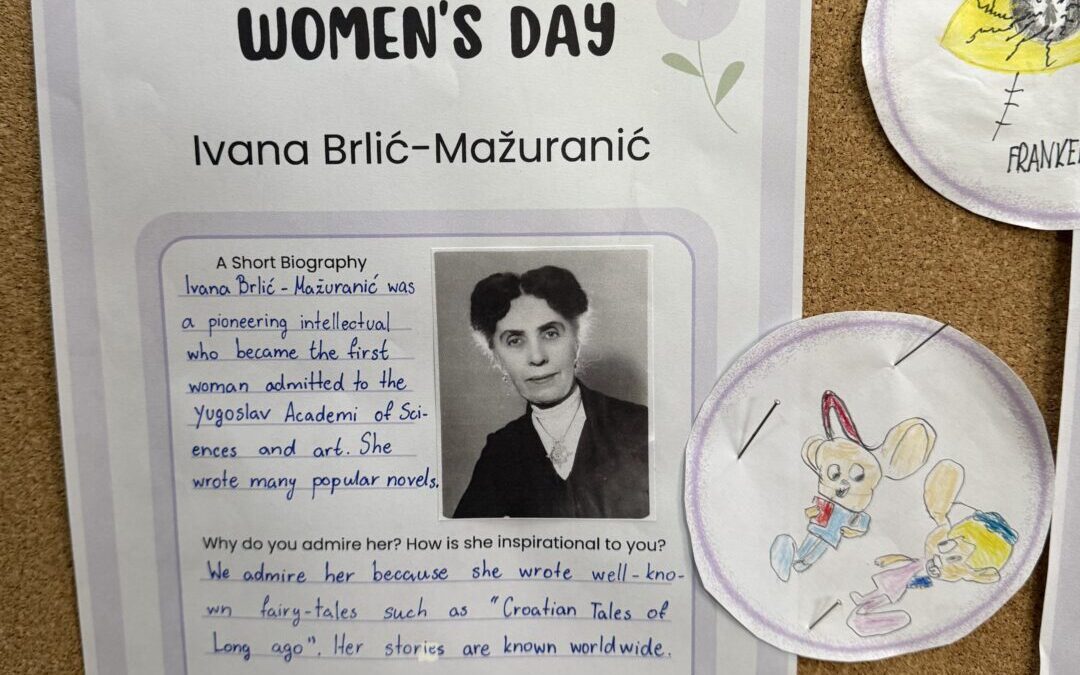 WOMEN'S DAY
Ivana Brlić-Mažuranić
A Short Biography
Ivana Brlić - Mažuranić was
a pioneering intellectual
who became the first
woman admitted to the
Yugoslav Academi of Sci-
ences and art. She
wrote many popular novels.
Why do you admire her? How is she inspirational to you?
We admire her because she wrote well-kno-
wn fairy-tales such as "Croatian Tales of
Long ago". Her stories are known worldwide.
FRANKE